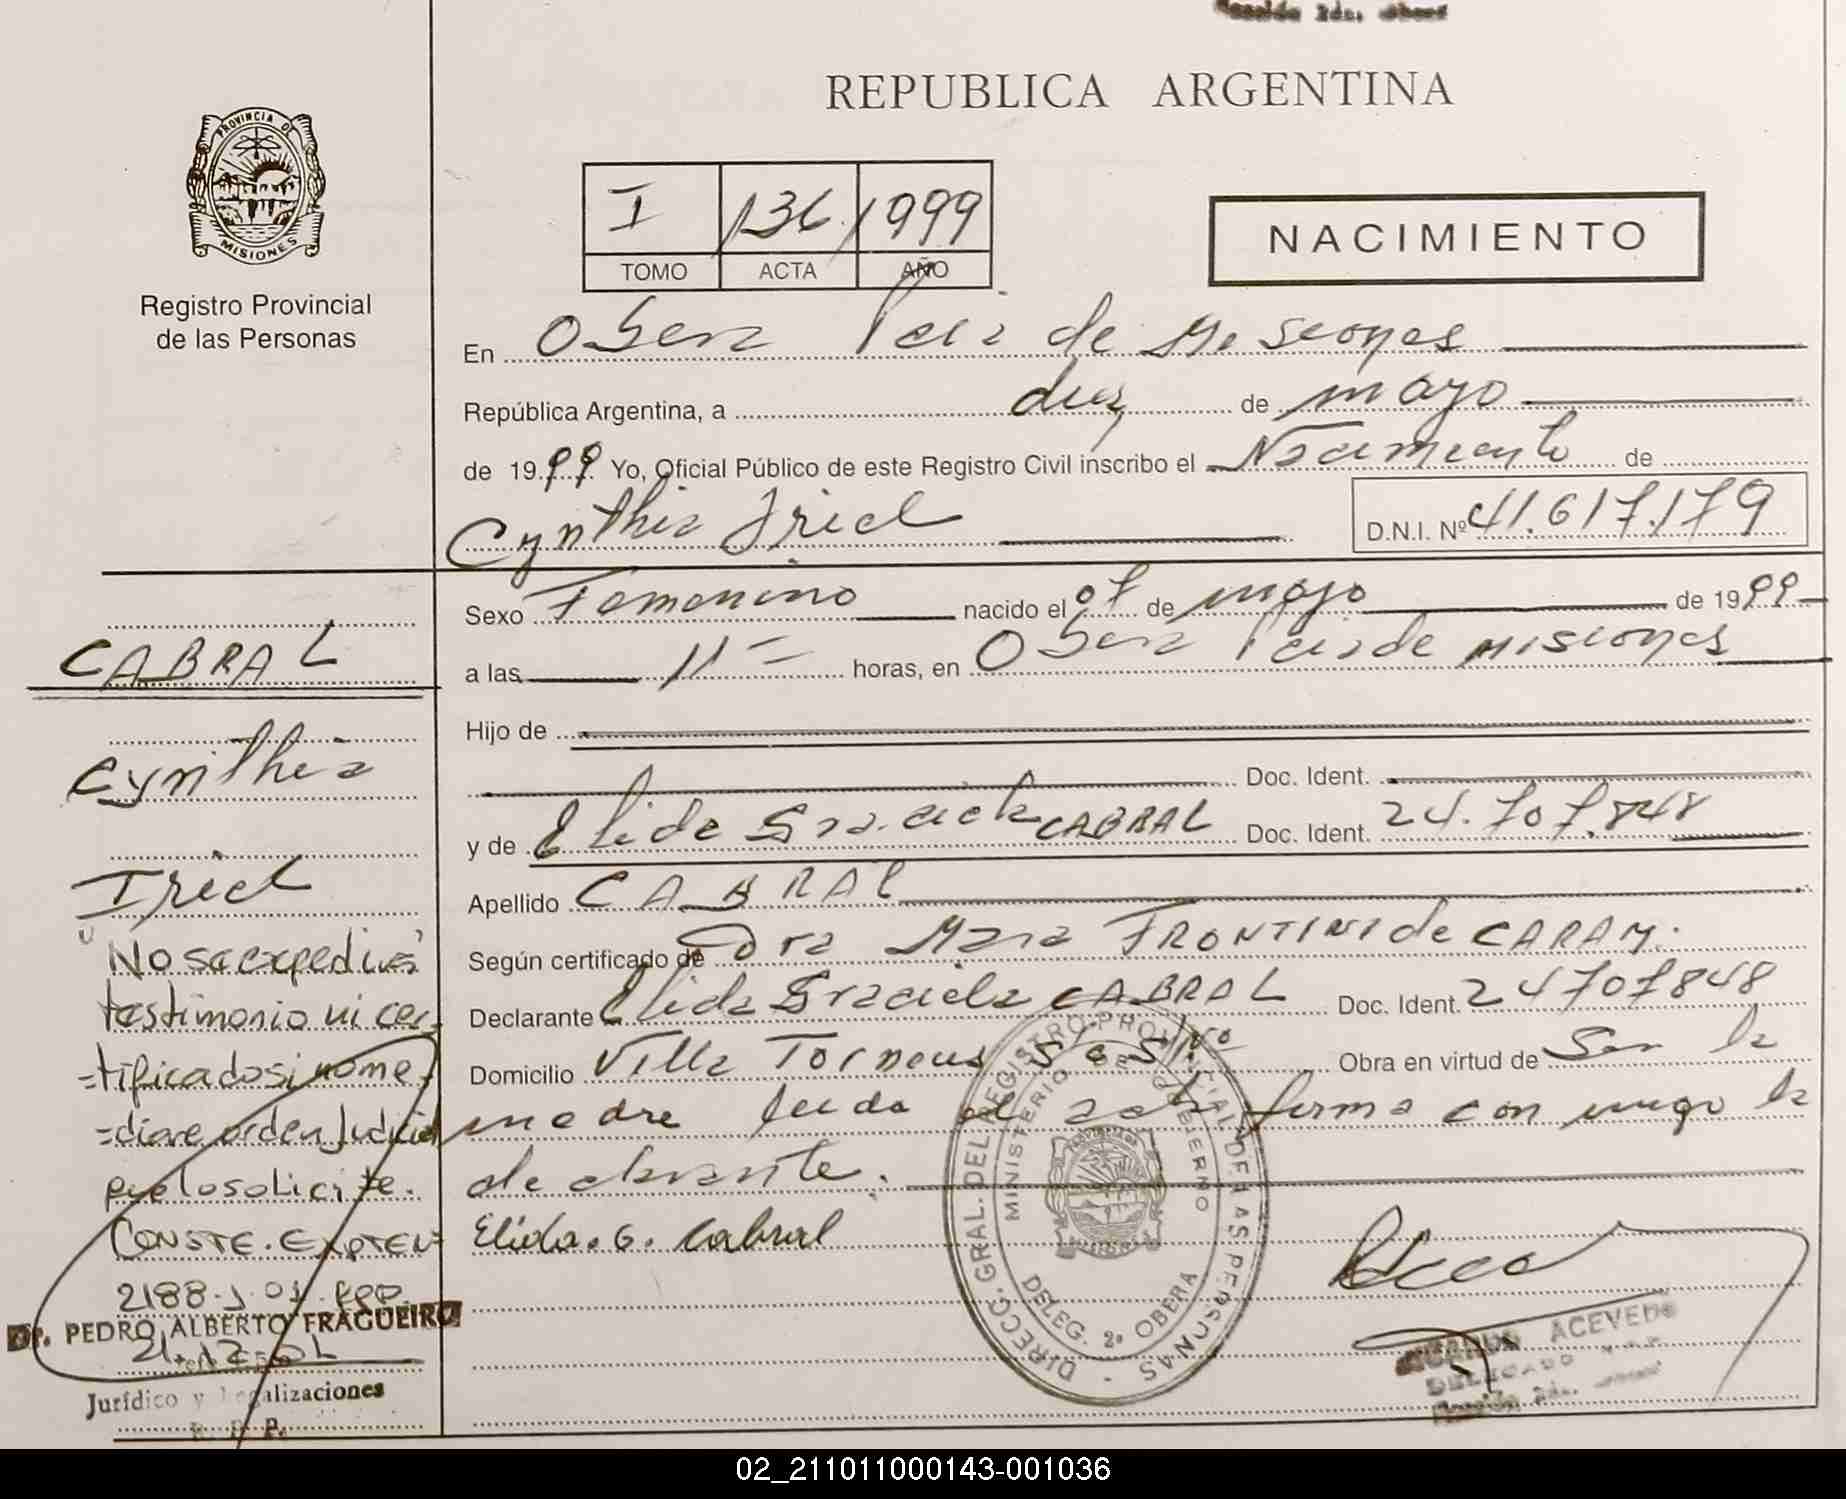 REPUBLICA ARGENTINA
PROVINCIA DE
MISIONES
Registro Provincial
de las Personas
I 136 1999
TOMO ACTA AÑO
NACIMIENTO
En Obera Pcia de Misiones
República Argentina, a diez de mayo
de 1999 Yo, Oficial Público de este Registro Civil inscribo el Nacimiento de
Cynthia Iriel D.N.I. Nº 41.617.179
Sexo Femenino nacido el 07 de mayo de 1999
a las 11 horas, en Obera Pcia de Misiones
Hijo de
Doc. Ident.
y de Elida Graciela CABRAL Doc. Ident. 24.707.848
Apellido CABRAL
Según certificado de Dra Maria FRONTINI de CARAM.
Declarante Elida Graciela CABRAL Doc. Ident. 24707848
Domicilio Villa Torneus Obra en virtud de Ser la
madre leida el acta firma con migo la
declarante.
Elida. G. Cabral
CABRAL
Cynthia
Iriel
"No se expedira
testimonio ni cer-
-tificado si no me-
-diare orden Judicial
que lo solicite.
CONSTE. EXPTE Nº
2188
Dr. PEDRO ALBERTO FRAGUEIRO
21-12-01
Jurídico y Legalizaciones
R. P. P.
DIRECC. GRAL. DEL REGISTRO PROVINCIAL DE LAS PERSONAS
MINISTERIO DE GOBIERNO
PROVINCIA DE
DELEG. 2ª OBERA
ACEVEDO
DELEGADO
02_211011000143-001036